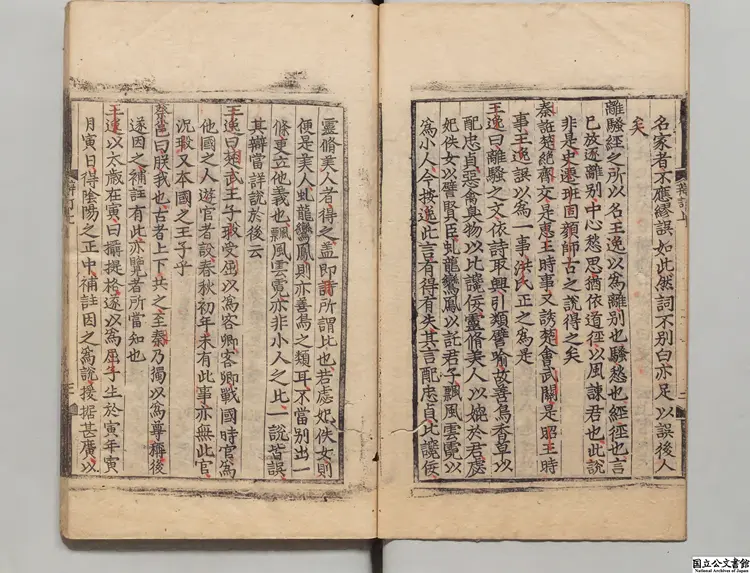 名家者不應繆誤如此然詞不別白亦足以誤後人
矣
離騷經之所以名王逸以為離別也騷愁也經徑也言
已放逐離別中心愁思猶依道徑以風諫君也此說
非是史遷班固顏師古之說得之矣
秦誑楚絶齊交是惠王時事又誘楚會武關是昭王時
事王逸誤以為一事洪氏正之為是
王逸曰離騷之文依詩取興引類譬喻故善鳥香草以
配忠貞惡禽臭物以比讒佞靈脩美人以媲於君宓
妃佚女以譬賢臣虬龍鸞鳳以託君子飄風雲霓以
為小人今按逸此言有得有失其言配忠貞比讒佞
靈脩美人者得之蓋即詩所謂比也若宓妃佚女則
便是美人虬龍鸞鳳則亦善鳥之類耳不當別出一
條更立他義也飄風雲霓亦非小人之比一說皆誤
其辯當詳說於後云
王逸曰楚武王子瑕受屈以為客卿客卿戰國時官為
他國之人遊宦者設春秋初年未有此事亦無此官
况瑕又本國之王子乎
蔡邕曰朕我也古者上下共之至秦乃獨以為尊稱後
遂因之補註有此亦覽者所當知也
王逸以太歲在寅曰攝提格遂以為屈子生於寅年寅
月寅日得陰陽之正中補註因之為說援据甚廣以
国立公文書館
National Archives of Japan